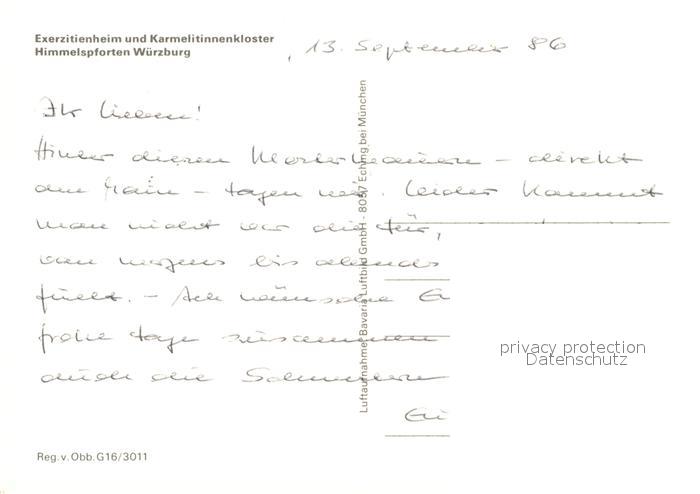 Exerzitienheim und Karmelitinnenkloster
Himmelspforten Würzburg
, 13. September 86
Ihr Lieben!
Hinter diesen Klostermauern – direkt
am Main – tagen wir. Leider kommt
man nicht vor die Tür,
von morgens bis abends
füllt. –
frohe Tage zusammen
auch die
privacy protection
Datenschutz
Luftaufnahme: Bavaria Luftbild GmbH - 8057 Eching bei München
Reg.v.Obb.G16/3011